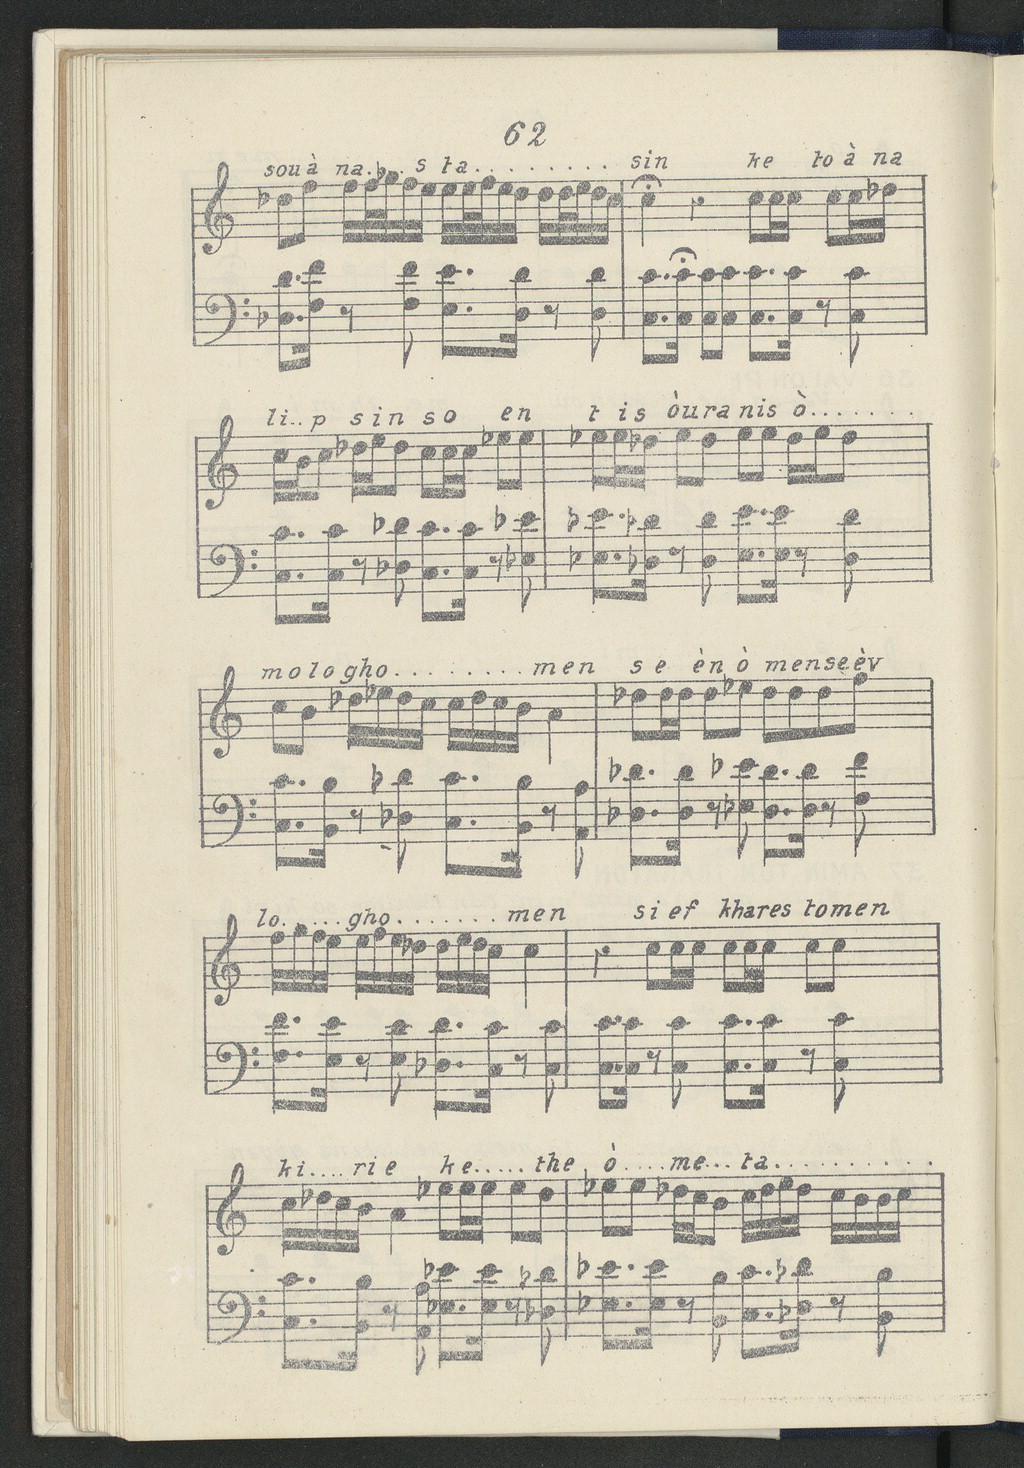 62
sou à na . . s ta . . . . . . . . . sin ke to à na
li . . p sin so en t is òura nis ò . . . . . . .
mo lo gho . . . . . . . . men s e èn ò menseèv
lo . . . . . gho . . . . . . . men si ef khares tomen
ki . . . . rie ke . . . . . the ò . . . . me . . . ta . . . . . . . . . .